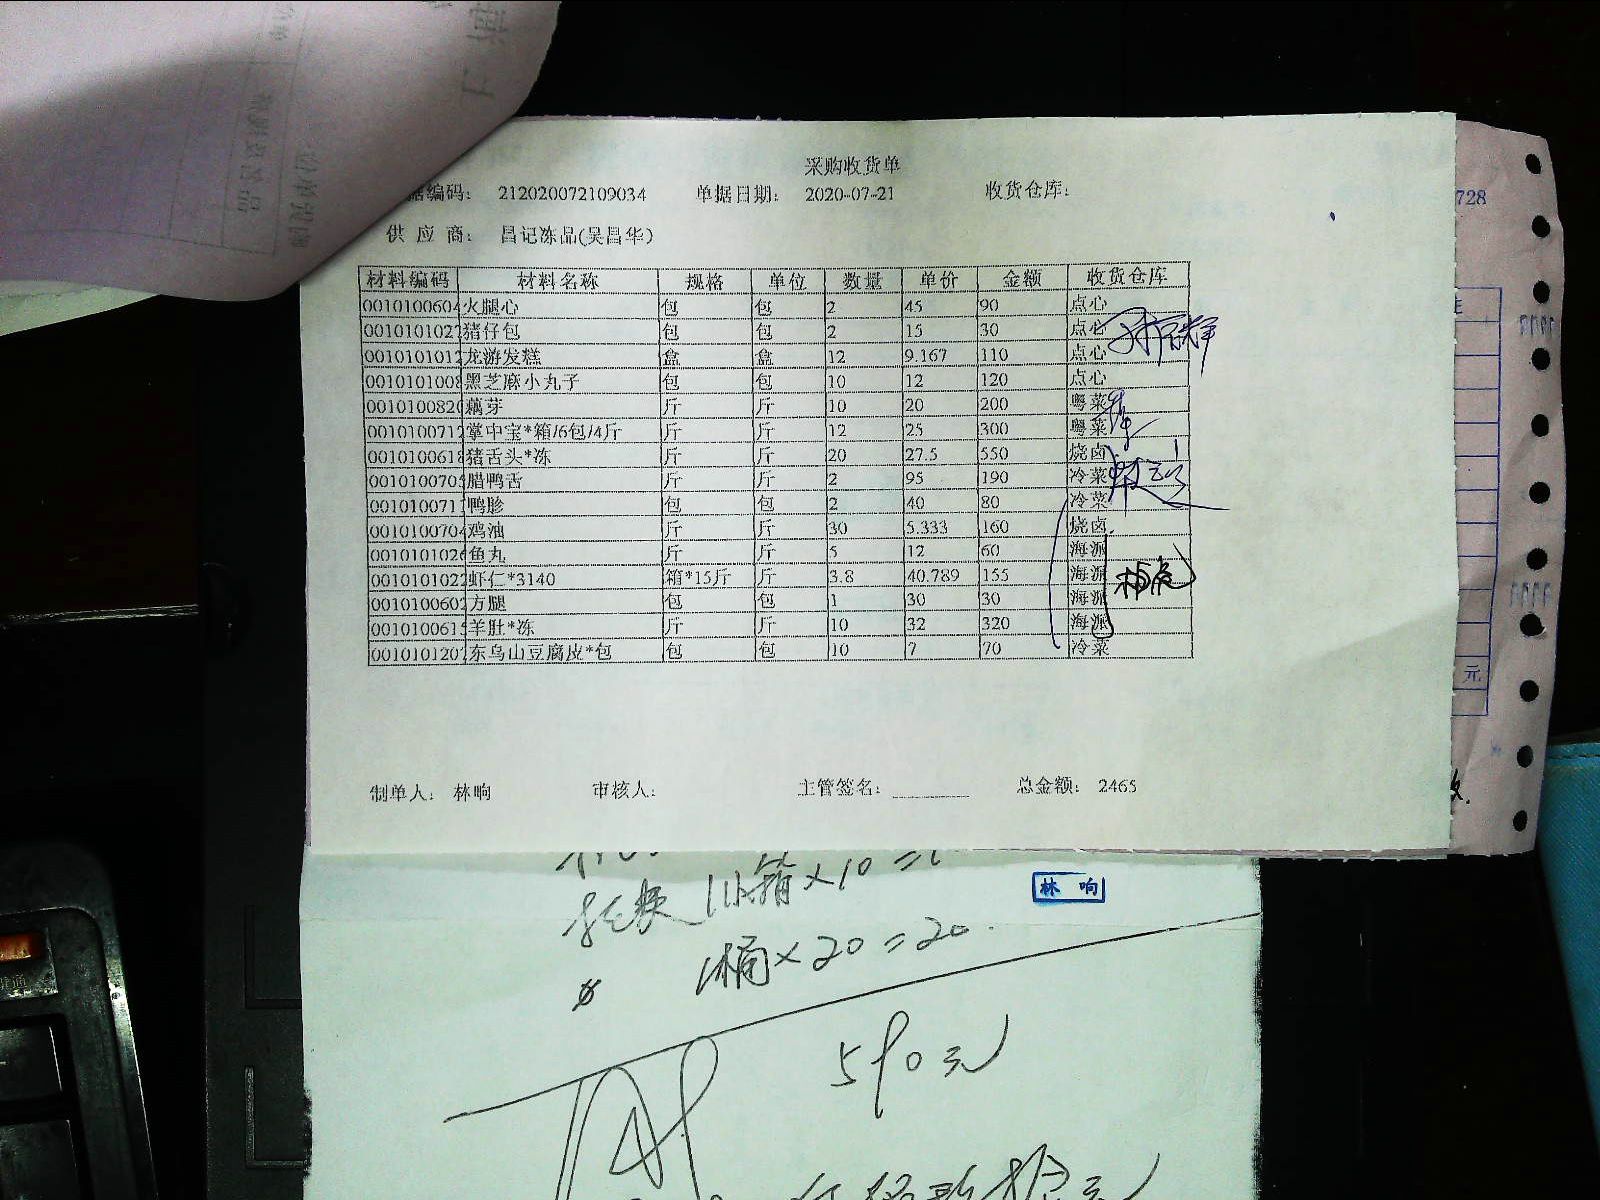 采购收货单
据编码: 212020072109034 单据日期: 2020-07-21 收货仓库:
供应商: 昌记冻品(吴昌华)
材料编码 材料名称 规格 单位 数量 单价 金额 收货仓库
0010100604 火腿心 包 包 2 45 90 点心
0010101027 猪仔包 包 包 2 15 30 点心
0010101012 龙游发糕 盒 盒 12 9.167 110 点心
0010101008 黑芝麻小丸子 包 包 10 12 120 点心
0010100820 藕芽 斤 斤 10 20 200 粤菜
0010100712 掌中宝*箱/6包/4斤 斤 斤 12 25 300 粤菜
0010100618 猪舌头*冻 斤 斤 20 27.5 550 烧卤
0010100705 腊鸭舌 斤 斤 2 95 190 冷菜
001010071 鸭胗 包 包 2 40 80 冷菜
0010100704 鸡油 斤 斤 30 5.333 160 烧卤
0010101026 鱼丸 斤 斤 5 12 60 海派
0010101022 虾仁*3140 箱*15斤 斤 3.8 40.789 155 海派
0010100602 方腿 包 包 1 30 30 海派
0010100615 羊肚*冻 斤 斤 10 32 320 海派
0010101207 东乌山豆腐皮*包 包 包 10 7 70 冷菜
制单人: 林响 审核人: 主管签名: 总金额: 2465
728
元
林响
箱×10=1
1桶×20=20.
590元